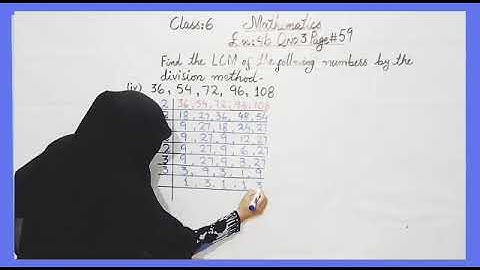 Class:6 Mathematics
Ex:4b Qno3 Page#59
Find the LCM of the following numbers by the
division method.
(iv) 36, 54, 72, 96, 108
2 36, 54, 72, 96, 108
2 18, 27, 36, 48, 54
9, 27, 18, 24, 27
9, 27, 9, 12, 27
2 9, 27, 9, 6, 27
3 9, 27, 9, 3, 27
3 3, 9, 3, 1, 9
1, 3, 1, 1, 3